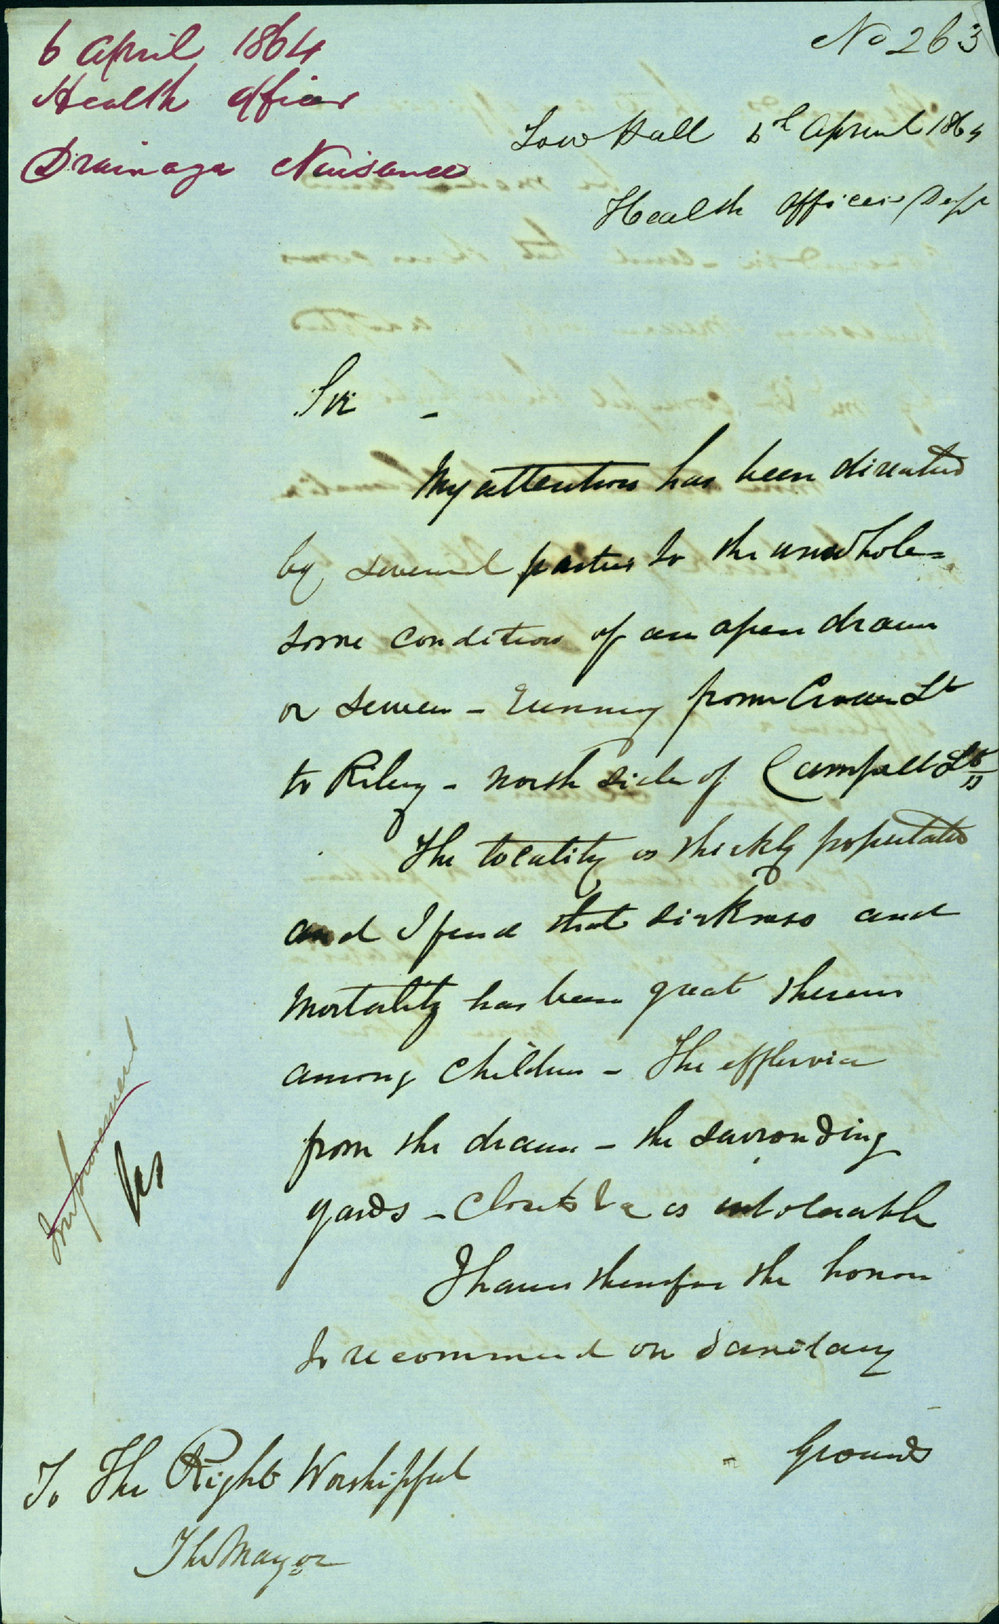 6 April 1864
Health Officer
Drainage Nuisance
No 263
Town Hall 6th April 1864
Health Officers Dept
Sir -
My attention has been directed
by several parties to the unwhole=
some condition of an open drain
or sewer - running from Crown St
to Riley - north side of Campbell St
The locality is thickly populated
and I find that sickness and
mortality has been great therein
among children - The effluvia
from the drain - the surronding
yards - Closets &c is intolerable
I have therefore the honor
to recommend on Sanitary
- Grounds
Improvement
To The Right Worshipful
The Mayor